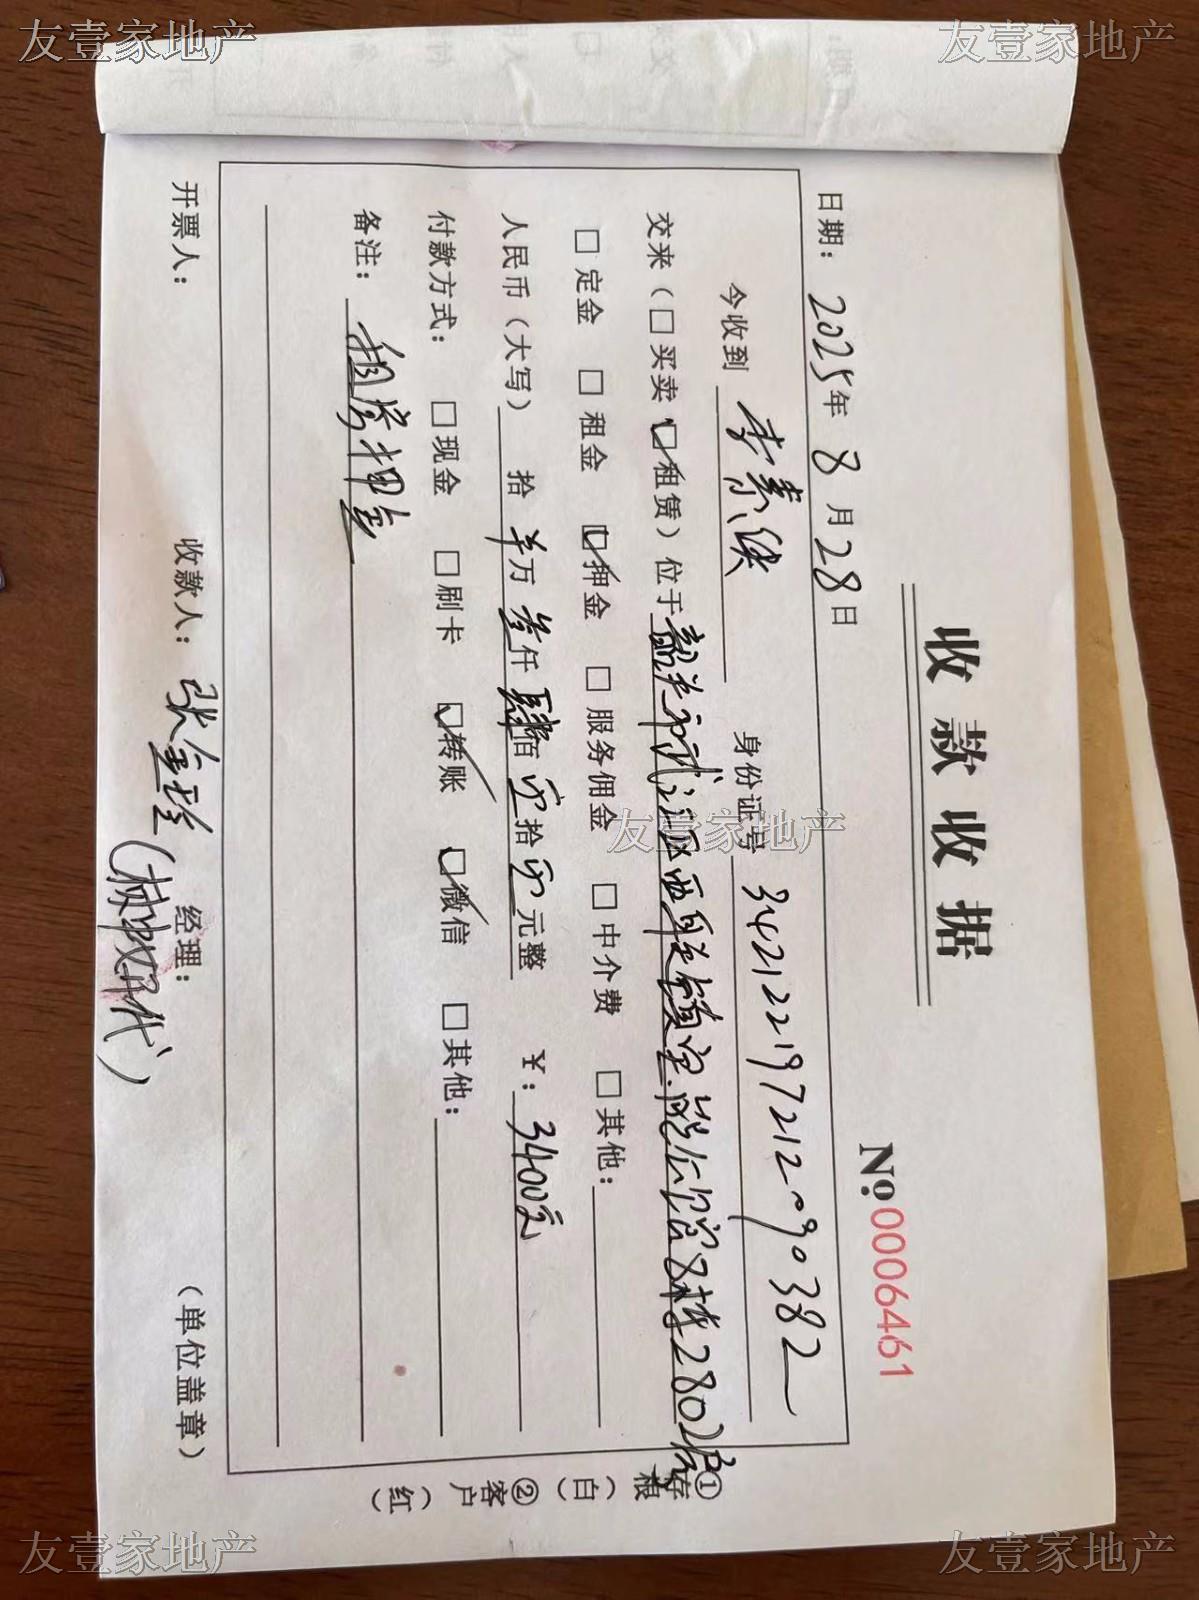 友壹家地产
友壹家地产
收款收据
№0006461
日期：2025年8月28日
今收到 李素侠 身份证号 342122197212090382
交来（□买卖 ☑租赁）位于韶关市武江区西联镇 8栋2802房
□定金 □租金 ☑押金 □服务佣金 □中介费 □其他：
人民币（大写） 拾 羊万 叁仟 肆佰 零拾 零元整 ￥：3400元
付款方式： □现金 □刷卡 ☑转账 ☑微信 □其他：
备注：租房押金
开票人： 收款人：张金珍 代） 经理： （单位盖章）
①存根（白） ②客户（红）
友壹家地产
友壹家地产
友壹家地产